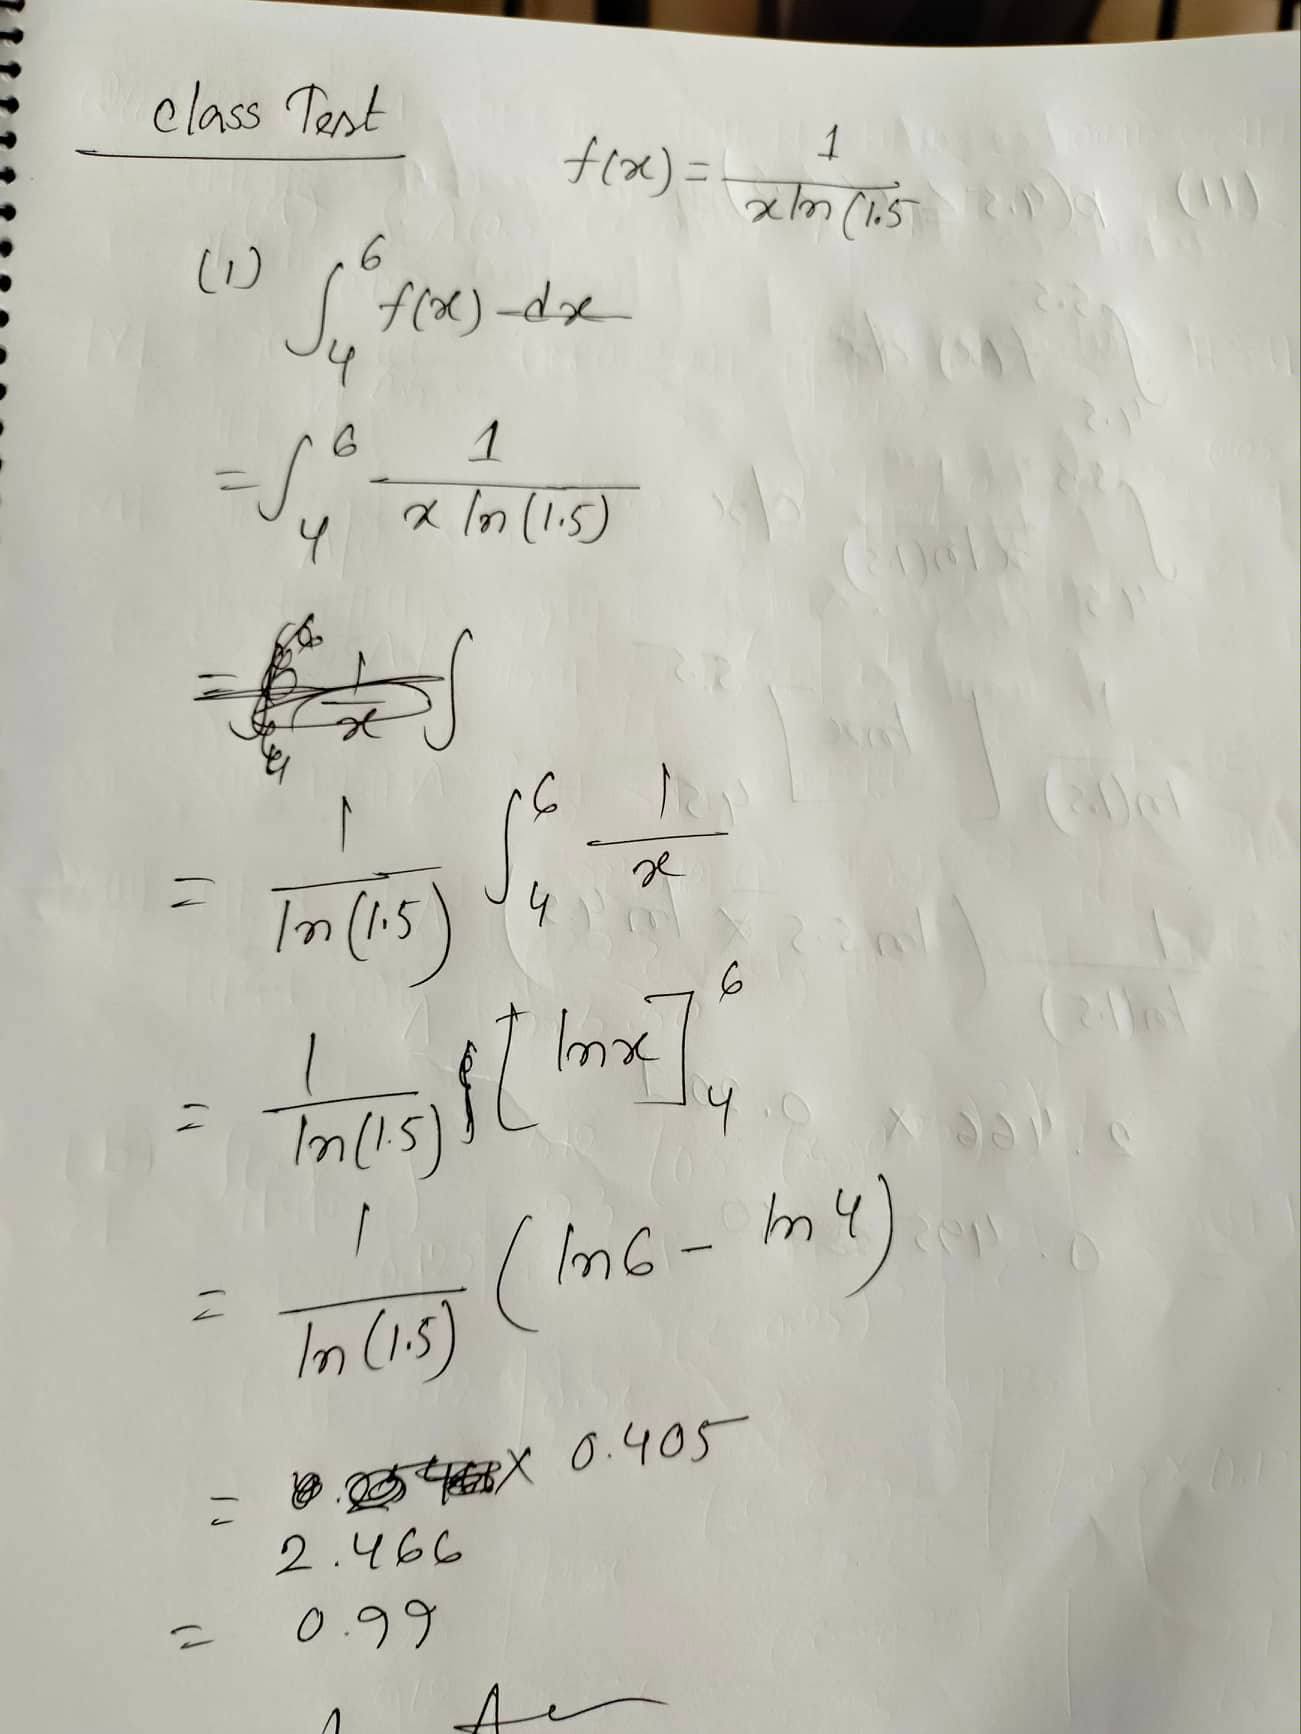 Class Test
f(x) = 1 / x ln (1.5
(1) ∫₄⁶ f(x) dx
= ∫₄⁶ 1 / x ln (1.5)
= 1 / x ∫
= 1 / ln (1.5) ∫₄⁶ 1 / x
= 1 / ln (1.5) [ ln x ]₄⁶
= 1 / ln (1.5) ( ln 6 - ln 4 )
= × 0.405
2.466
= 0.99